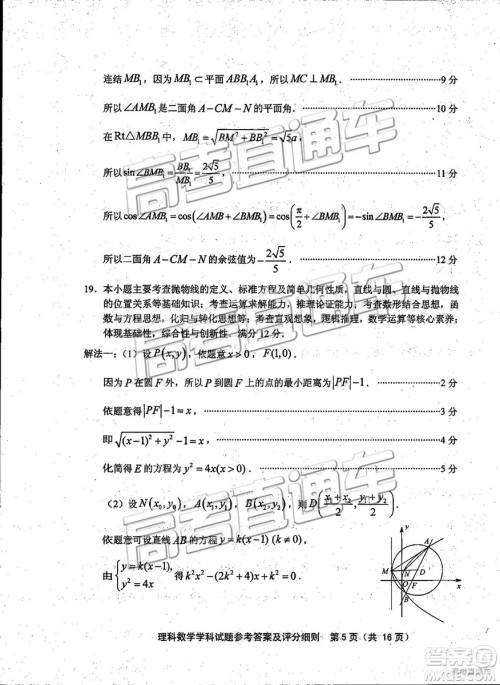 连结 MB₁，因为 MC⊥平面 ABB₁A₁，所以 MC⊥MB₁．……9 分
所以∠AMB₁ 是二面角 A－CM－N 的平面角．……10 分
在 Rt△MBB₁ 中，MB₁=√(BM²+BB₁²)=√5a，
所以 sin∠BMB₁=BB₁/MB₁=2√5/5，
所以 cos∠AMB₁=cos(π/2+∠BMB₁)=－sin∠BMB₁=－2√5/5，
所以二面角 A－CM－N 的余弦值为－2√5/5．……12 分
19．本小题主要考查抛物线的定义、标准方程及简单几何性质，直线与圆、直线与抛物线
的位置关系等基础知识；考查运算求解能力，推理论证能力；考查数形结合思想，函
数与方程思想，化归与转化思想等；考查直观想象，逻辑推理，数学运算等核心素养；
体现基础性，综合性与创新性．满分 12 分．
解法一：（1）设 P(x,y)，依题意 x>0，F(1,0)．
因为 P 在圆 F 外，所以 P 到圆 F 上的点的最小距离为|PF|－1．……2 分
依题意得|PF|－1=x，……3 分
即√((x－1)²+y²)－1=x，……4 分
化简得 E 的方程为 y²=4x(x>0)．……5 分
（2）设 N(x₀,y₀)，A(x₁,y₁)，B(x₂,y₂)，则 D((x₁+x₂)/2,(y₁+y₂)/2)．
依题意可设直线AB方程为 y=k(x－1)(k≠0)，
由{y=k(x－1), y²=4x 得 k²x²－(2k²+4)x+k²=0，
y
A
M
N
D
O
F
B
x
理科数学学科试题参考答案及评分细则 第 5 页（共 16 页）
高考直通车
高考直通车
高考直通车